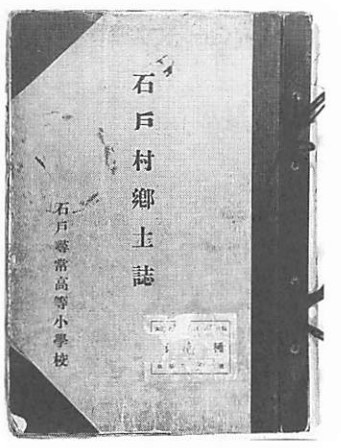 石戸村鄕土誌
石戸尋常高等小學校
種